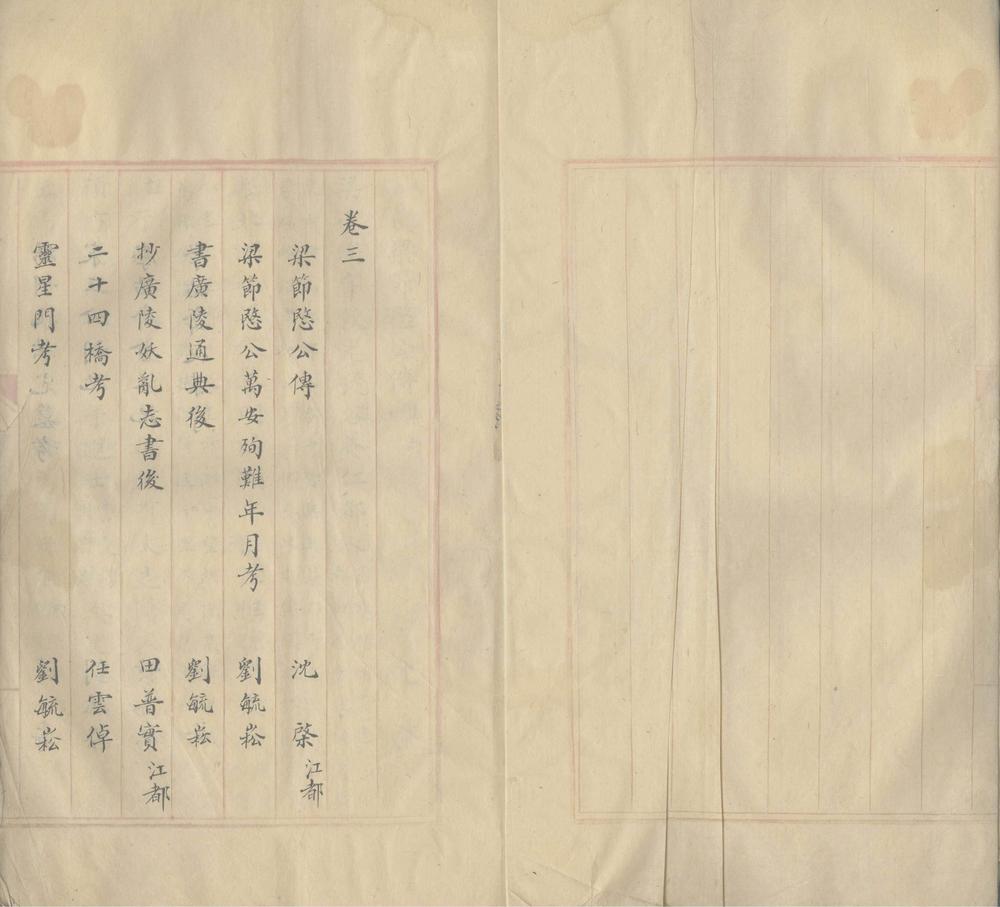 卷三
梁節愍公傳 沈棨 江都
梁節愍公萬安殉難年月考 劉毓崧
書廣陵通典後 劉毓崧
抄廣陵妖亂志書後 田普實 江都
二十四橋考 任雲倬
靈星門考 劉毓崧